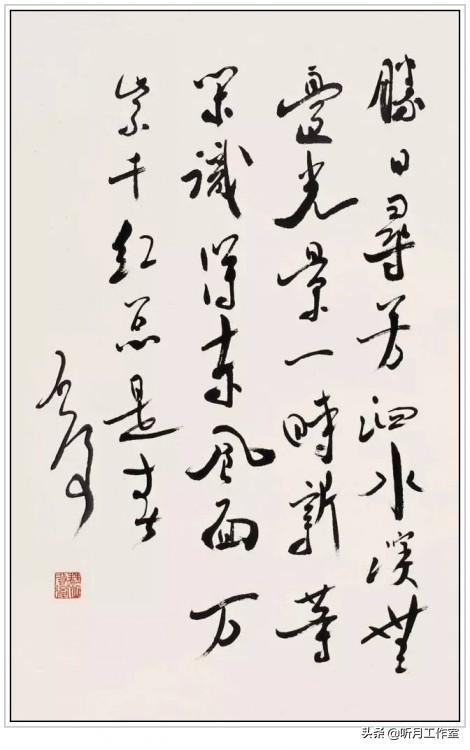 勝日尋芳泗水濱無
邊光景一時新等
閑識得東風面万
紫千紅總是春
头条 @听月工作室